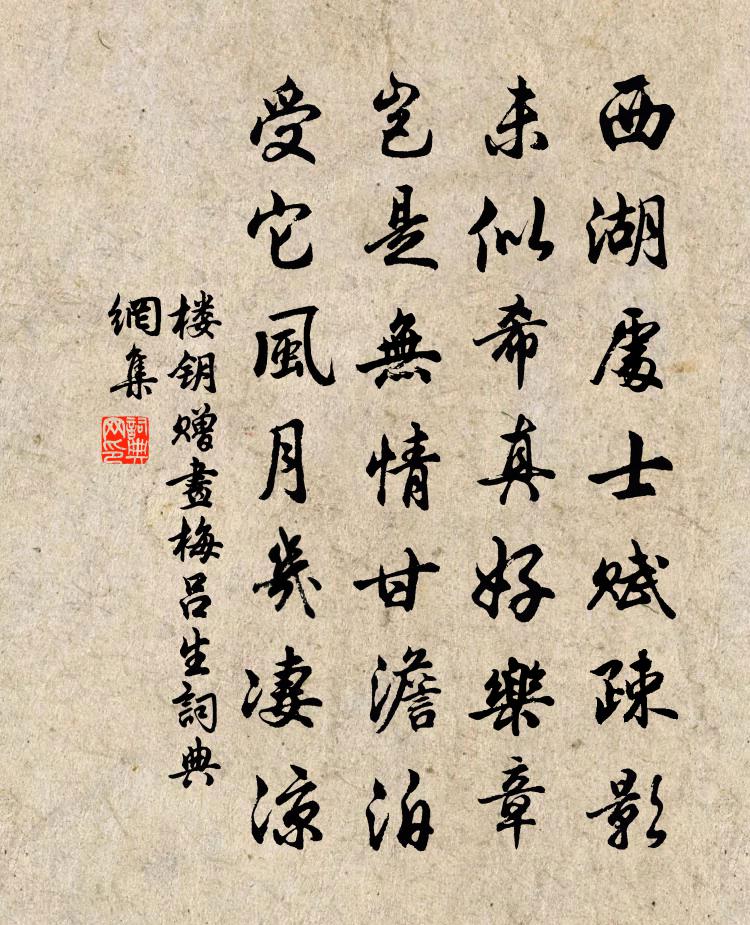 西湖處士賦疎影
未似希真好樂章
豈是無情甘澹泊
受它風月幾凄涼
楼钥赠畫梅吕生詞典
網集
詞典網印